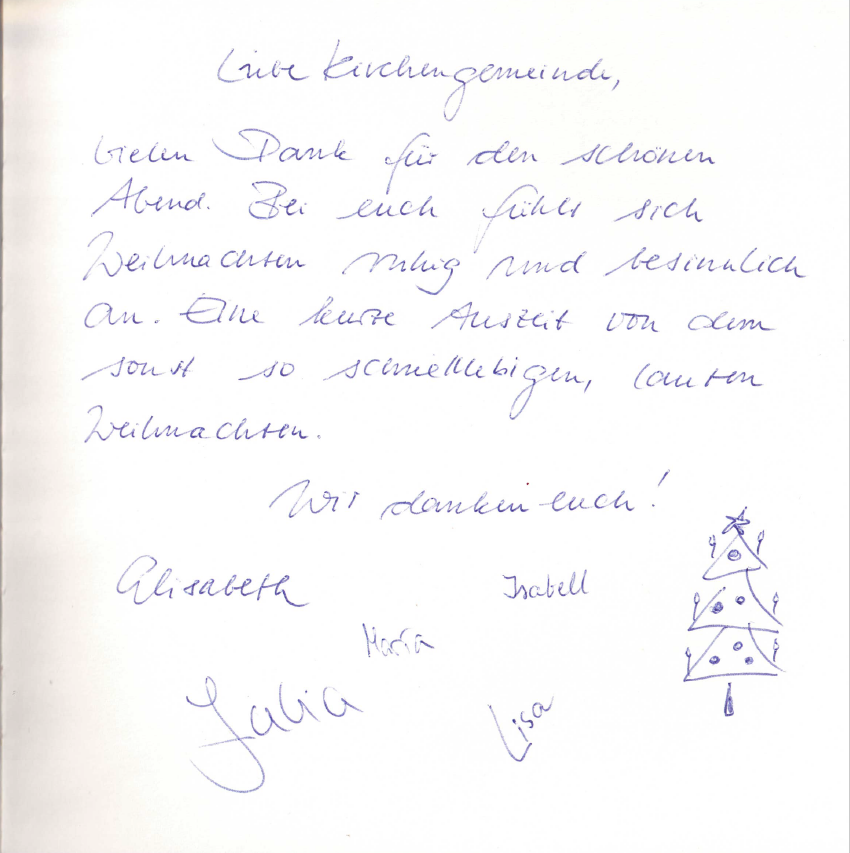 Liebe Kirchengemeinde,
Vielen Dank für den schönen
Abend. Bei euch fühlt sich
Weihnachten ruhig und besinnlich
an. Eine kurze Auszeit von dem
sonst so schnelllebigen, lauten
Weihnachten.
Wir danken euch!
Elisabeth
Isabell
Maria
Julia
Lisa